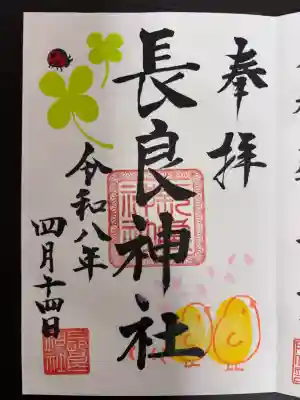 奉拝
長良神社
令和八年
四月十四日